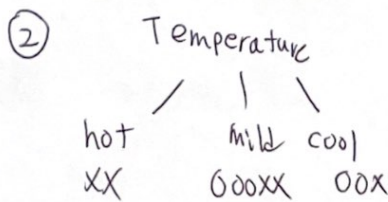 ② Temperature
hot mild cool
XX OOOXX OOX